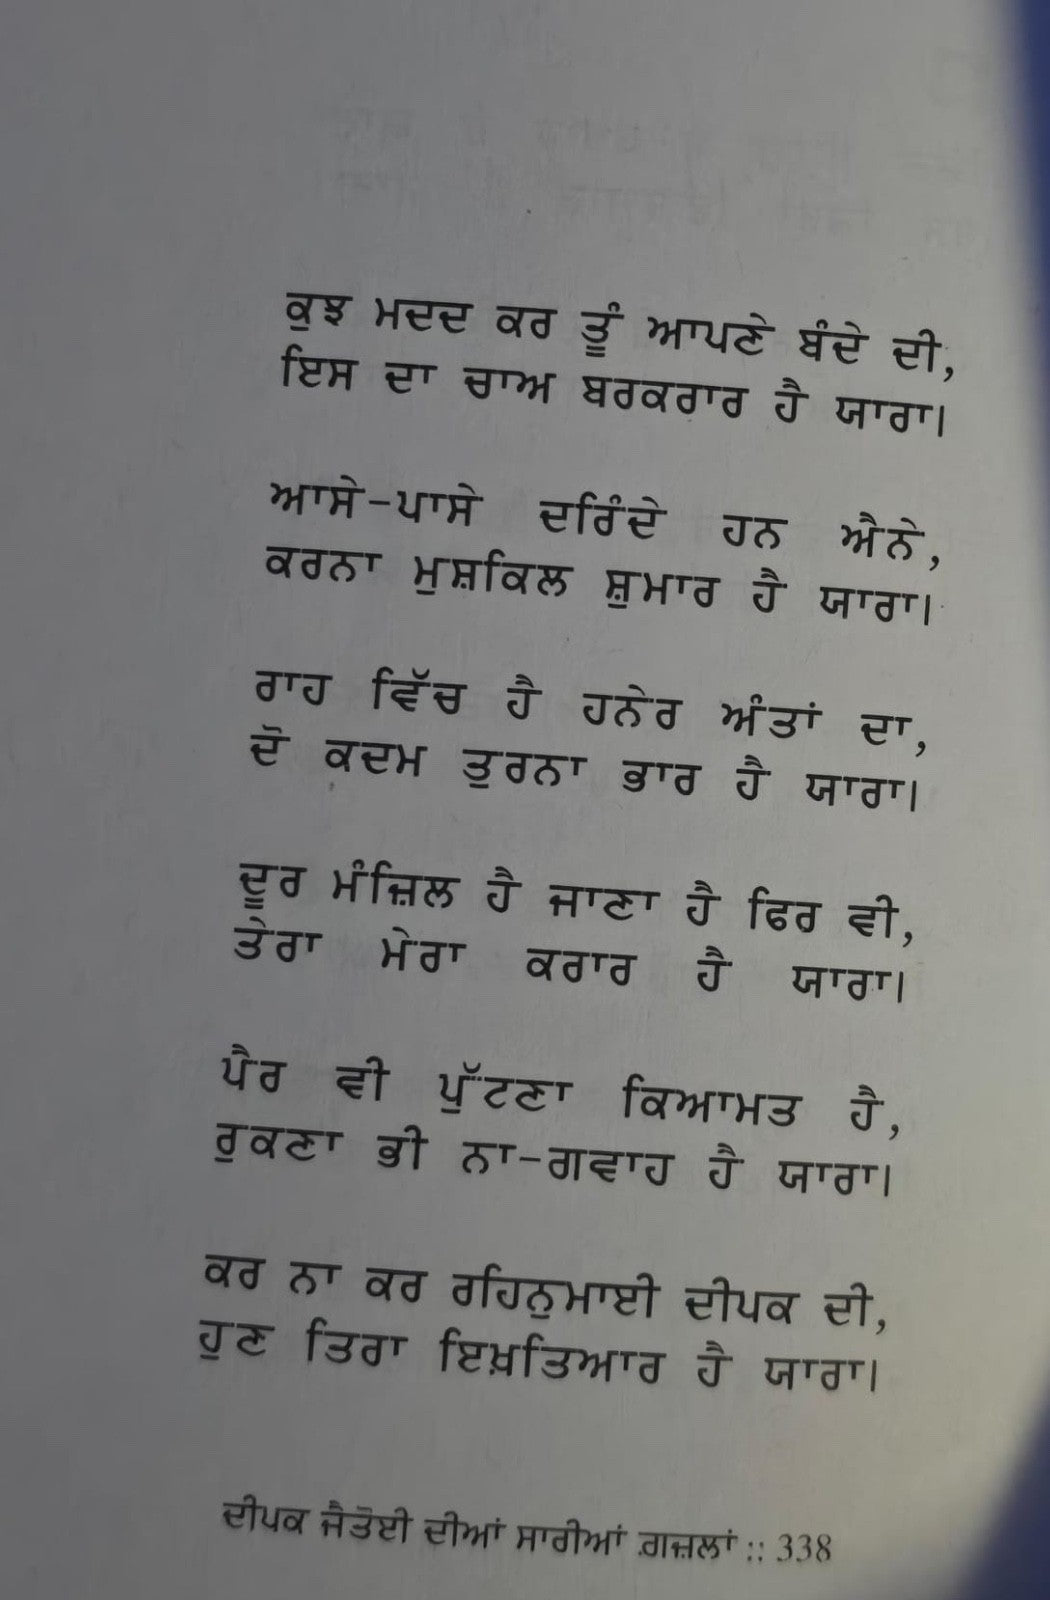 ਕੁਝ ਮਦਦ ਕਰ ਤੂੰ ਆਪਣੇ ਬੰਦੇ ਦੀ,
ਇਸ ਦਾ ਚਾਅ ਬਰਕਰਾਰ ਹੈ ਯਾਰਾ।
ਆਸੇ-ਪਾਸੇ ਦਰਿੰਦੇ ਹਨ ਐਨੇ,
ਕਰਨਾ ਮੁਸ਼ਕਿਲ ਸ਼ੁਮਾਰ ਹੈ ਯਾਰਾ।
ਰਾਹ ਵਿੱਚ ਹੈ ਹਨੇਰ ਅੰਤਾਂ ਦਾ,
ਦੋ ਕਦਮ ਤੁਰਨਾ ਭਾਰ ਹੈ ਯਾਰਾ।
ਦੂਰ ਮੰਜ਼ਿਲ ਹੈ ਜਾਣਾ ਹੈ ਫਿਰ ਵੀ,
ਤੇਰਾ ਮੇਰਾ ਕਰਾਰ ਹੈ ਯਾਰਾ।
ਪੈਰ ਵੀ ਪੁੱਟਣਾ ਕਿਆਮਤ ਹੈ,
ਰੁਕਣਾ ਭੀ ਨਾ-ਗਵਾਹ ਹੈ ਯਾਰਾ।
ਕਰ ਨਾ ਕਰ ਰਹਿਨੁਮਾਈ ਦੀਪਕ ਦੀ,
ਹੁਣ ਤਿਰਾ ਇਖ਼ਤਿਆਰ ਹੈ ਯਾਰਾ।
ਦੀਪਕ ਜੈਤੋਈ ਦੀਆਂ ਸਾਰੀਆਂ ਗ਼ਜ਼ਲਾਂ :: 338